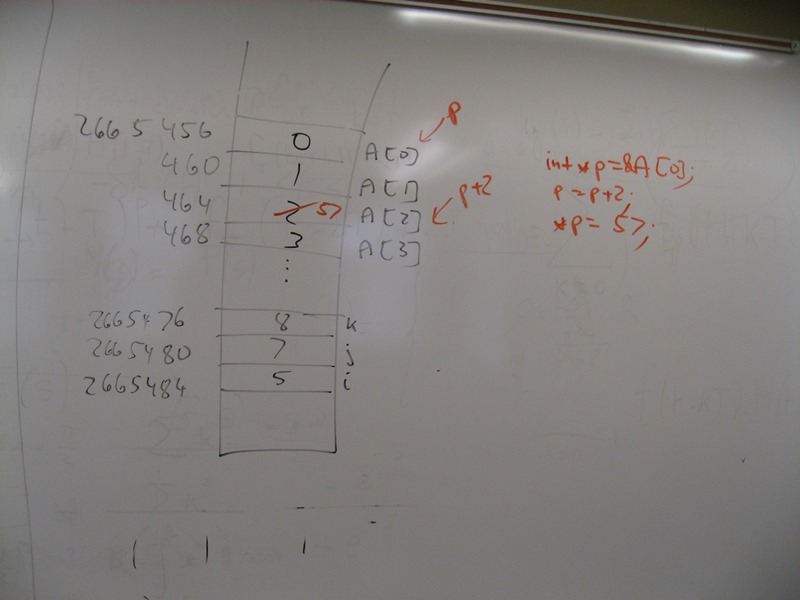 p
2665456 0 A[0]
460 1 A[1]
464 2 57 A[2] p+2
468 3 A[3]
⋮
2665476 8 k
2665480 7 j
2665484 5 i
int *p=&A[0];
p=p+2;
*p= 57;